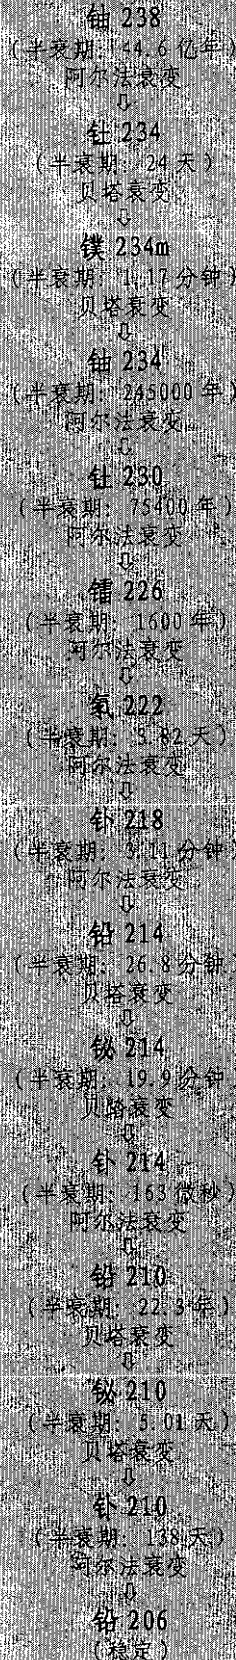 铀 238
(半衰期: 44.6 亿年)
阿尔法衰变
⇩
钍 234
(半衰期: 24 天)
贝塔衰变
⇩
镤 234m
(半衰期: 1.17 分钟)
贝塔衰变
⇩
铀 234
(半衰期: 245000 年)
阿尔法衰变
⇩
钍 230
(半衰期: 75400 年)
阿尔法衰变
⇩
镭 226
(半衰期: 1600 年)
阿尔法衰变
⇩
氡 222
(半衰期: 3.82 天)
阿尔法衰变
⇩
钋 218
(半衰期: 3.11 分钟)
阿尔法衰变
⇩
铅 214
(半衰期: 26.8 分钟)
贝塔衰变
⇩
铋 214
(半衰期: 19.9 分钟)
贝塔衰变
⇩
钋 214
(半衰期: 163 微秒)
阿尔法衰变
⇩
铅 210
(半衰期: 22.3 年)
贝塔衰变
⇩
铋 210
(半衰期: 5.01 天)
贝塔衰变
⇩
钋 210
(半衰期: 138 天)
阿尔法衰变
⇩
铅 206
(稳定)